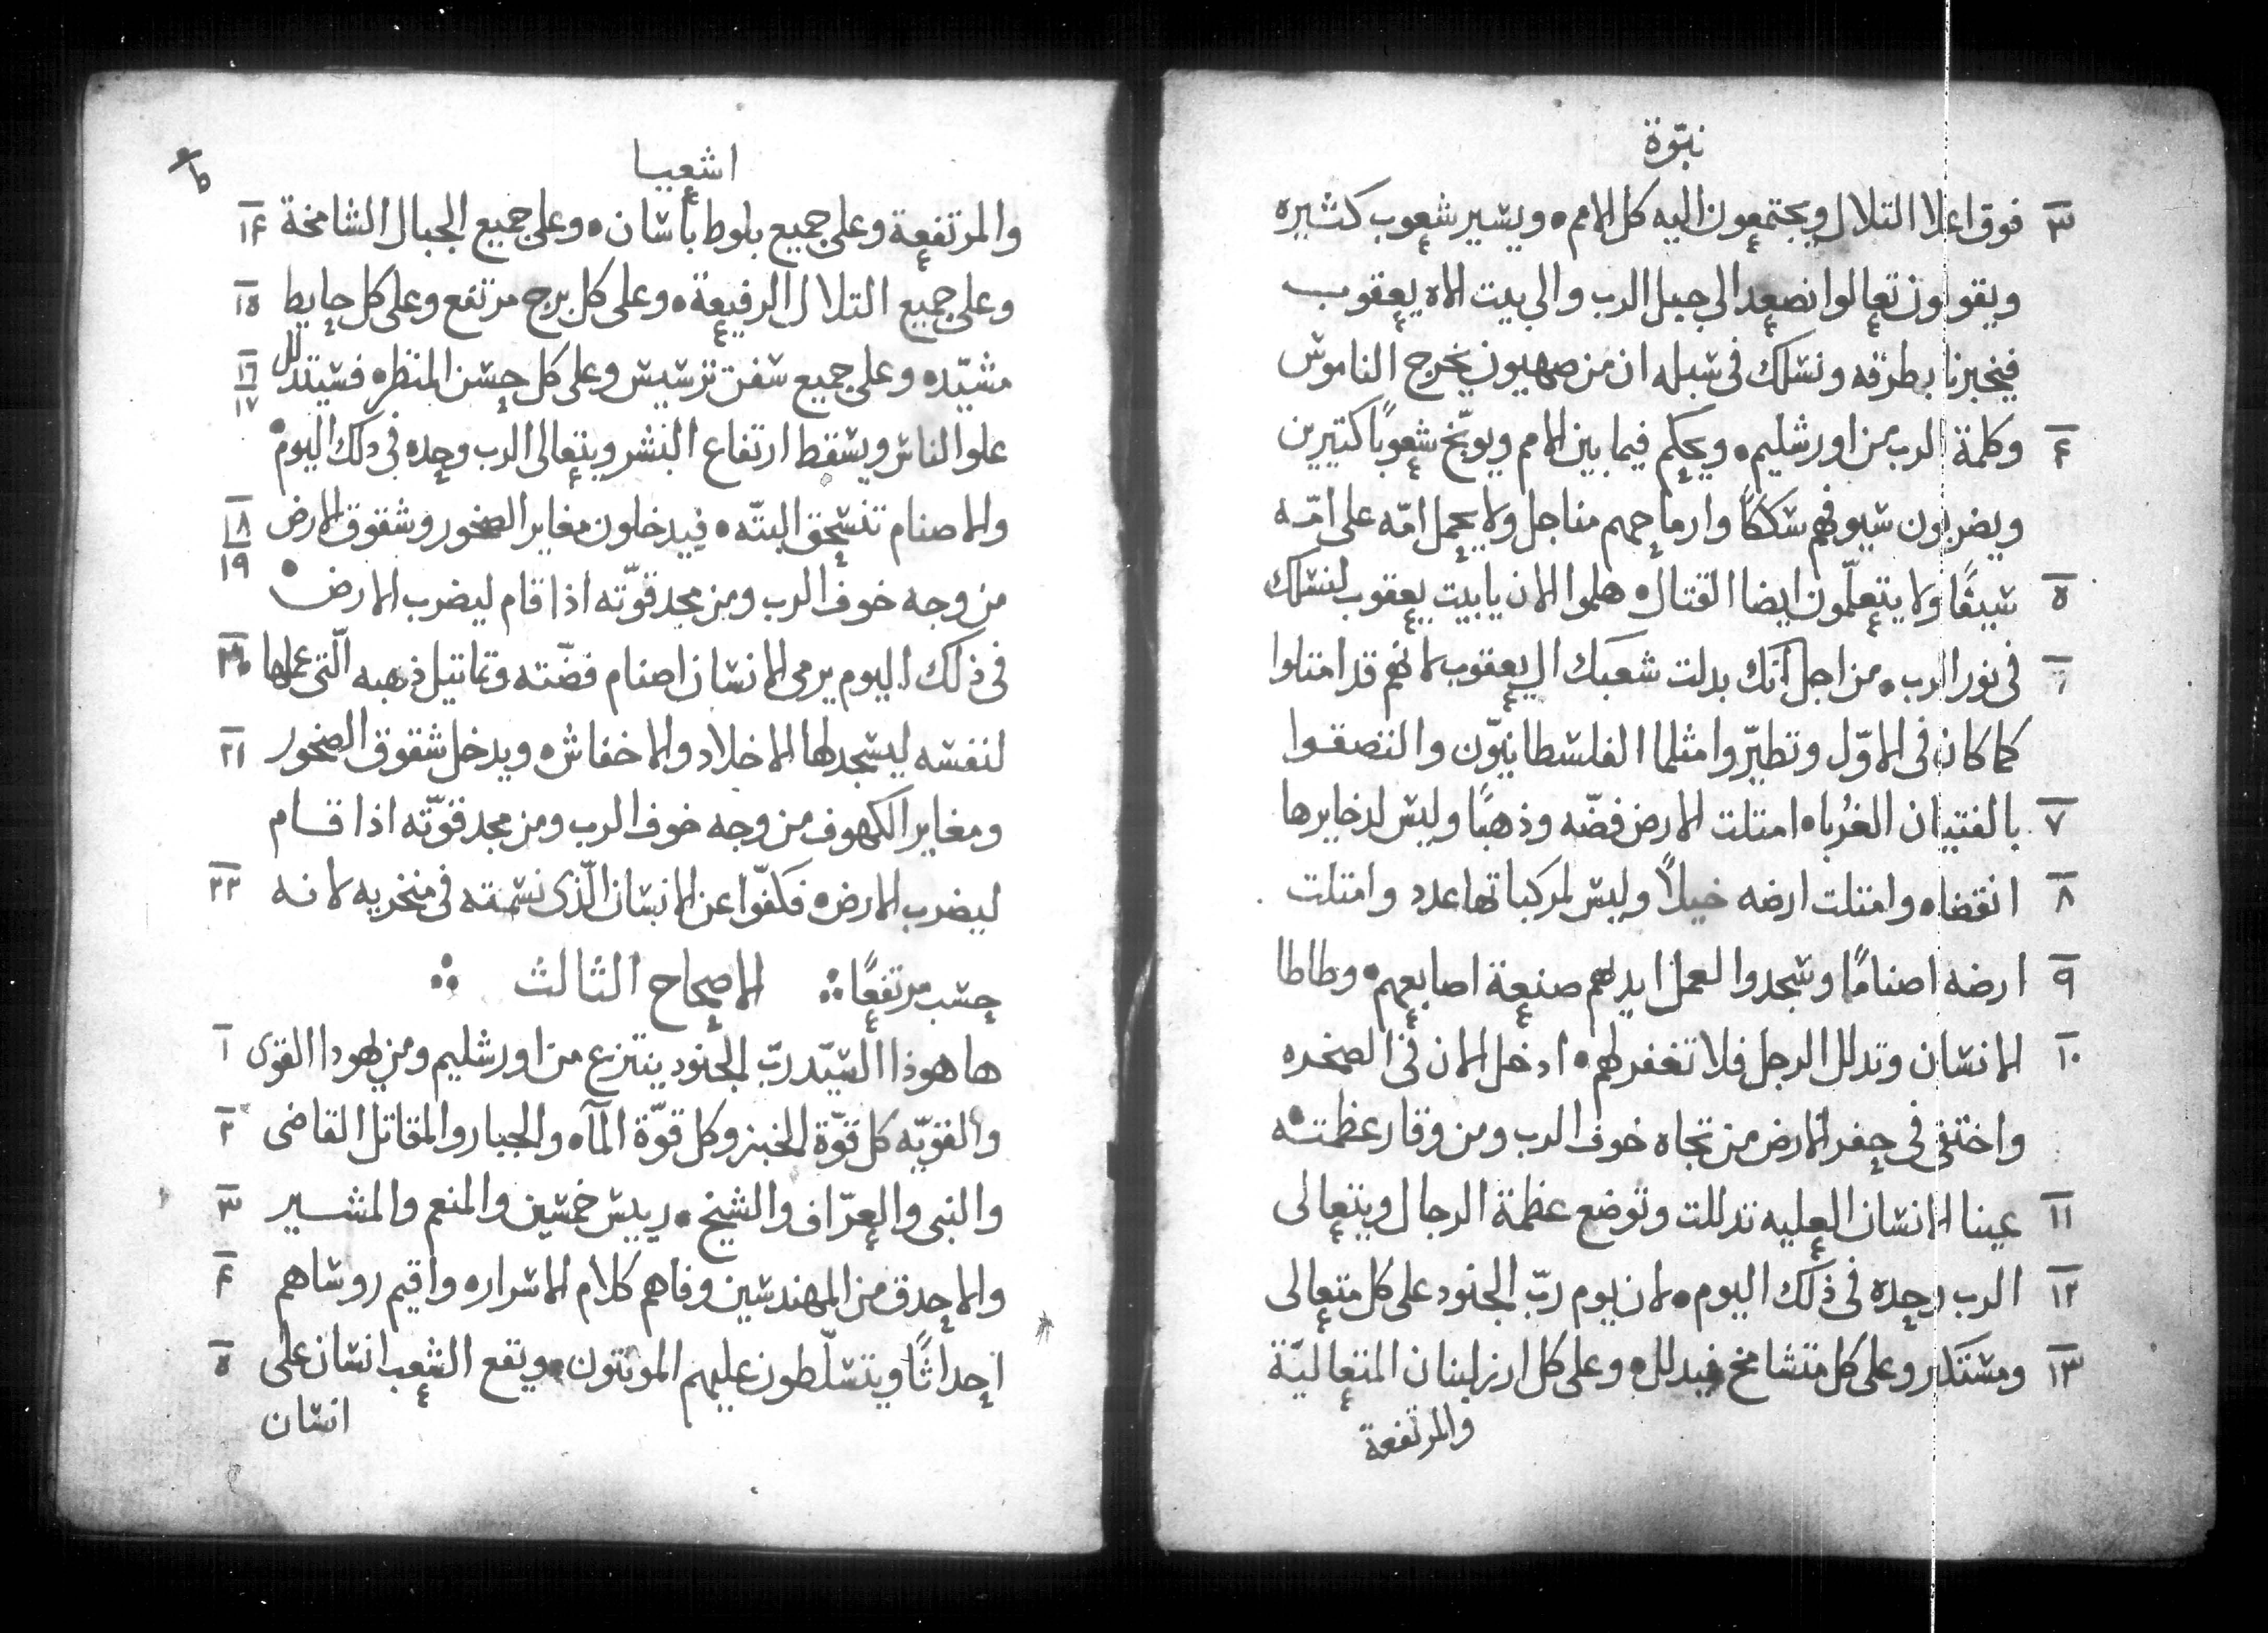 نبوّة
٣ فوق اعلا التلال ويجتمعون اليه كل الامم ويسير شعوب كثيره
ويقولون تعالوا نصعد الى جبل الرب والى بيت الاه يعقوب
فيخبرنا بطرقه ونسلك فى سبله ان من صهيون يخرج الناموس
٤ وكلمة الرب من اورشليم ويحكم فيما بين الامم ويوبّخ شعوبًا كتيرين
ويضربون سيوفهم سككًا وارماحهم مناجل ولا يحمل امّه على امّه
٥ سيفًا ولا يتعلّمون ايضا القتال هلموا الان يا بيت يعقوب لنسلك
٦ فى نور الرب من اجل انك بدلت شعبك ال يعقوب لانهم قد امتلوا
كما كان فى الاوّل وتطيّروا مثلما الفلسطانيّون والتصقوا
٧ بالفتيان الغُرباه امتلت الارض فضّه وذهبًا وليس لدخايرها
٨ انقضاه وامتلت ارضه خيلًا وليس لمركباتها عدد وامتلت
٩ ارضه اصنامًا وسجدوا لعمل ايديهم صنعة اصابعهم وطاطا
١٠ الانسان وتدلل الرجل فلا تغفر لهم ادخل الان فى الصخره
واختفى فى حفر الارض من تجاه خوف الرب ومن وقار عظمته
١١ عينا الانسان العليه تدللت وتوضع عظمة الرجال ويتعالى
١٢ الرب وحده فى ذلك اليوم لان يوم ربّ الجنود على كل متعالى
١٣ ومستكبر وعلى كل متشامخ فيدلل وعلى كل ارز لبنان المتعاليّة
والمرتفعة
اشعيا
والمرتفعة وعلى جميع بلوط باسان وعلى جميع الجبال الشامخة ١٤
وعلى جميع التلال الرفيعة وعلى كل برج مرتفع وعلى كل حايط ١٥
مشيّده وعلى جميع سفن ترسيس وعلى كل حسن المنظره فسيتدلل ١٦ ١٧
علوا الناس ويسقط ارتفاع البشر ويتعالى الرب وحده فى دلك اليوم
والاصنام تنسحق البتّه فيدخلون مغاير الصخور وشقوق الارض ١٨ ١٩
من وجه خوف الرب ومن مجد قوّته اذا قام ليضرب الارض
فى ذلك اليوم يرمى الانسان اصنام فضّته وتماتيل ذهبه الّتى عملها ٢٠
لنفسه ليسجد لها الاخلاد والاخفاش ويدخل شقوق الصخور ٢١
ومغاير الكهوف من وجه خوف الرب ومن مجد قوّته اذا قام
ليضرب الارض فكفّوا عن الانسان الّذى نسمته فى منخريه لانه ٢٢
حسب مرتفعًا الاصحاح الثالث
ها هوذا السيّد ربّ الجنود ينتزع من اورشليم ومن يهودا القوى ١
والقويّه كل قوّة الخبز وكل قوّة المآه والجبار والمقاتل القاضى ٢
والنبى والعرّاف والشيخ رييس خمسين والمنعم والمشير ٣
والاحدق من المهندسين وفاهم كلام الاسراره واقيم روساهم ٤
احداثًا ويتسلّطون عليهم الموتتون ويقع الشعب انسان على ٥
انسان